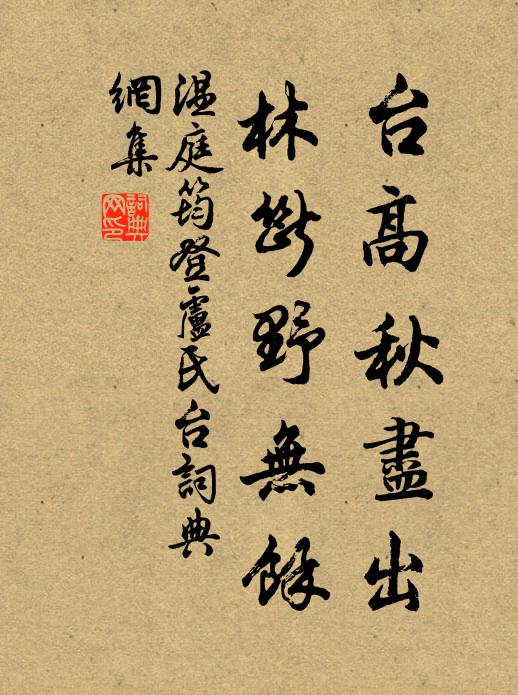 台高秋盡出
林斷野無餘
温庭筠登盧氏台詞典
網集
詞典
网印